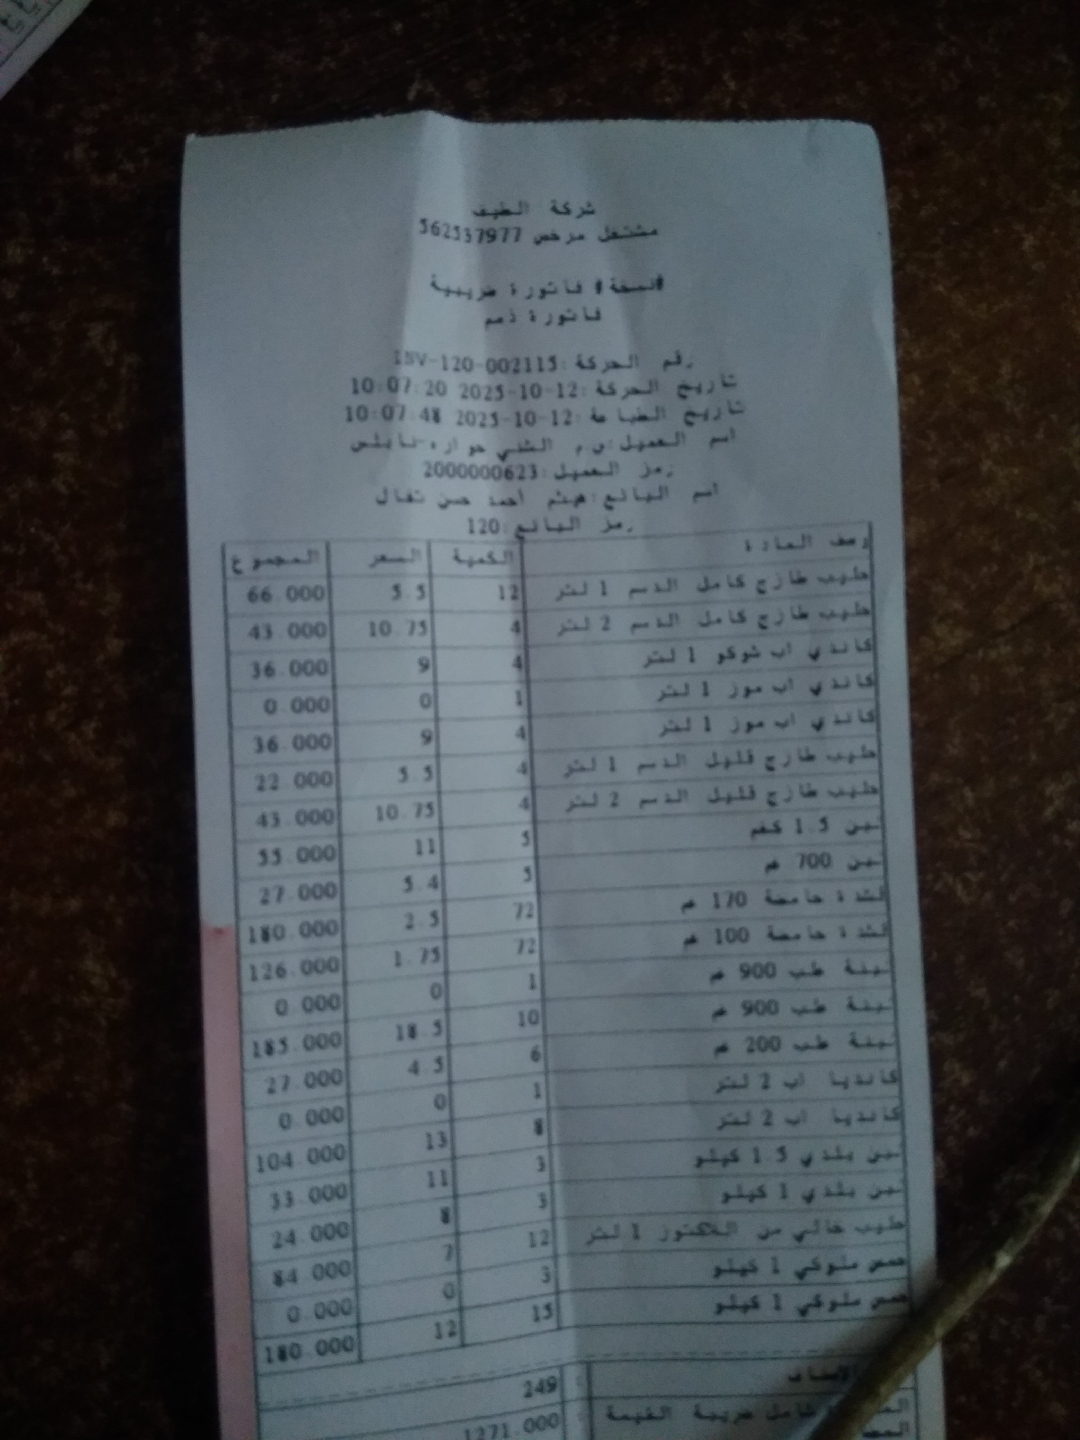 شركة الطيف
مشتغل مرخص 562537977
#نسخة# فاتورة ضريبية
فاتورة ذمم
رقم الحركة: INV-120-002115
تاريخ الحركة: 12-10-2025 10:07:20
تاريخ الطباعة: 12-10-2025 10:07:48
اسم العميل: م.م الشني حواره-نابلس
رمز العميل: 2000000623
اسم البائع: هيثم احمد حسن
رمز البائع: 120
وصف المادة الكمية السعر المجموع
حليب طازج كامل الدسم 1 لتر 12 5.5 66.000
حليب طازج كامل الدسم 2 لتر 4 10.75 43.000
كاندي اب شوكو 1 لتر 4 9 36.000
كاندي اب موز 1 لتر 1 0 0.000
كاندي اب موز 1 لتر 4 9 36.000
حليب طازج قليل الدسم 1 لتر 4 5.5 22.000
حليب طازج قليل الدسم 2 لتر 4 10.75 43.000
لبن 1.5 كغم 5 11 55.000
لبن 700 غم 5 5.4 27.000
قشدة حامضة 170 غم 72 2.5 180.000
قشدة حامضة 100 غم 72 1.75 126.000
لبنة طب 900 غم 1 0 0.000
لبنة طب 900 غم 10 18.5 185.000
لبنة طب 200 غم 6 4.5 27.000
كانديا اب 2 لتر 1 0 0.000
كانديا اب 2 لتر 8 13 104.000
لبن بلدي 1.5 كيلو 3 11 33.000
لبن بلدي 1 كيلو 3 8 24.000
حليب خالي من اللاكتوز 1 لتر 12 7 84.000
حمص ملوكي 1 كيلو 3 0 0.000
حمص ملوكي 1 كيلو 15 12 180.000
الاصناف : 249
شامل ضريبة القيمة : 1271.000